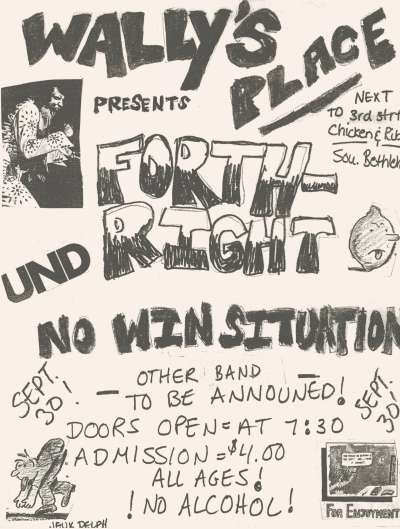 WALLY'S
PLACE
PRESENTS
NEXT
TO 3rd strt
Chicken & Rib
Sou. Bethleh
FORTH-
RIGHT
UND
NO WIN SITUATION
SEPT.
30!
- OTHER BAND -
TO BE ANNOUNED!
SEPT.
30!
DOORS OPEN = AT 7:30
ADMISSION = $4.00
ALL AGES!
! NO ALCOHOL!
FOR ENJOYMENT
DELPH